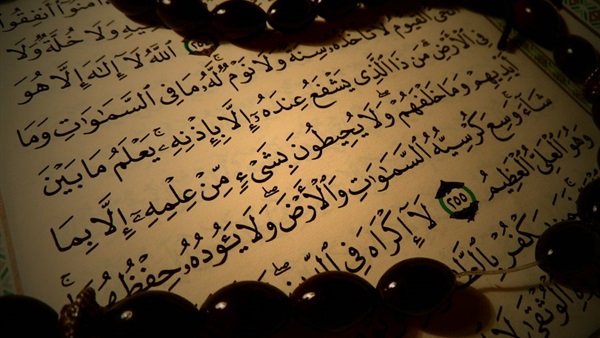 ءَامَنُوٓا۟ أَنفِقُوا۟
فِيهِ وَلَا خُلَّةٌ وَلَا
٢٥٤ ٱللَّهُ لَآ إِلَٰهَ إِلَّا هُوَ
ٱلْقَيُّومُ لَا تَأْخُذُهُۥ سِنَةٌ وَلَا نَوْمٌ لَّهُۥ مَا فِى ٱلسَّمَٰوَٰتِ وَمَا
فِى ٱلْأَرْضِ مَن ذَا ٱلَّذِى يَشْفَعُ عِندَهُۥٓ إِلَّا بِإِذْنِهِۦ يَعْلَمُ مَا بَيْنَ
أَيْدِيهِمْ وَمَا خَلْفَهُمْ وَلَا يُحِيطُونَ بِشَىْءٍ مِّنْ عِلْمِهِۦٓ إِلَّا بِمَا
شَآءَ وَسِعَ كُرْسِيُّهُ ٱلسَّمَٰوَٰتِ وَٱلْأَرْضَ وَلَا يَـُٔودُهُۥ حِفْظُهُمَا
وَهُوَ ٱلْعَلِىُّ ٱلْعَظِيمُ ٢٥٥ لَآ إِكْرَاهَ فِى ٱلدِّينِ
يَكْفُرْ
ٱلْوُثْقَىٰ لَا